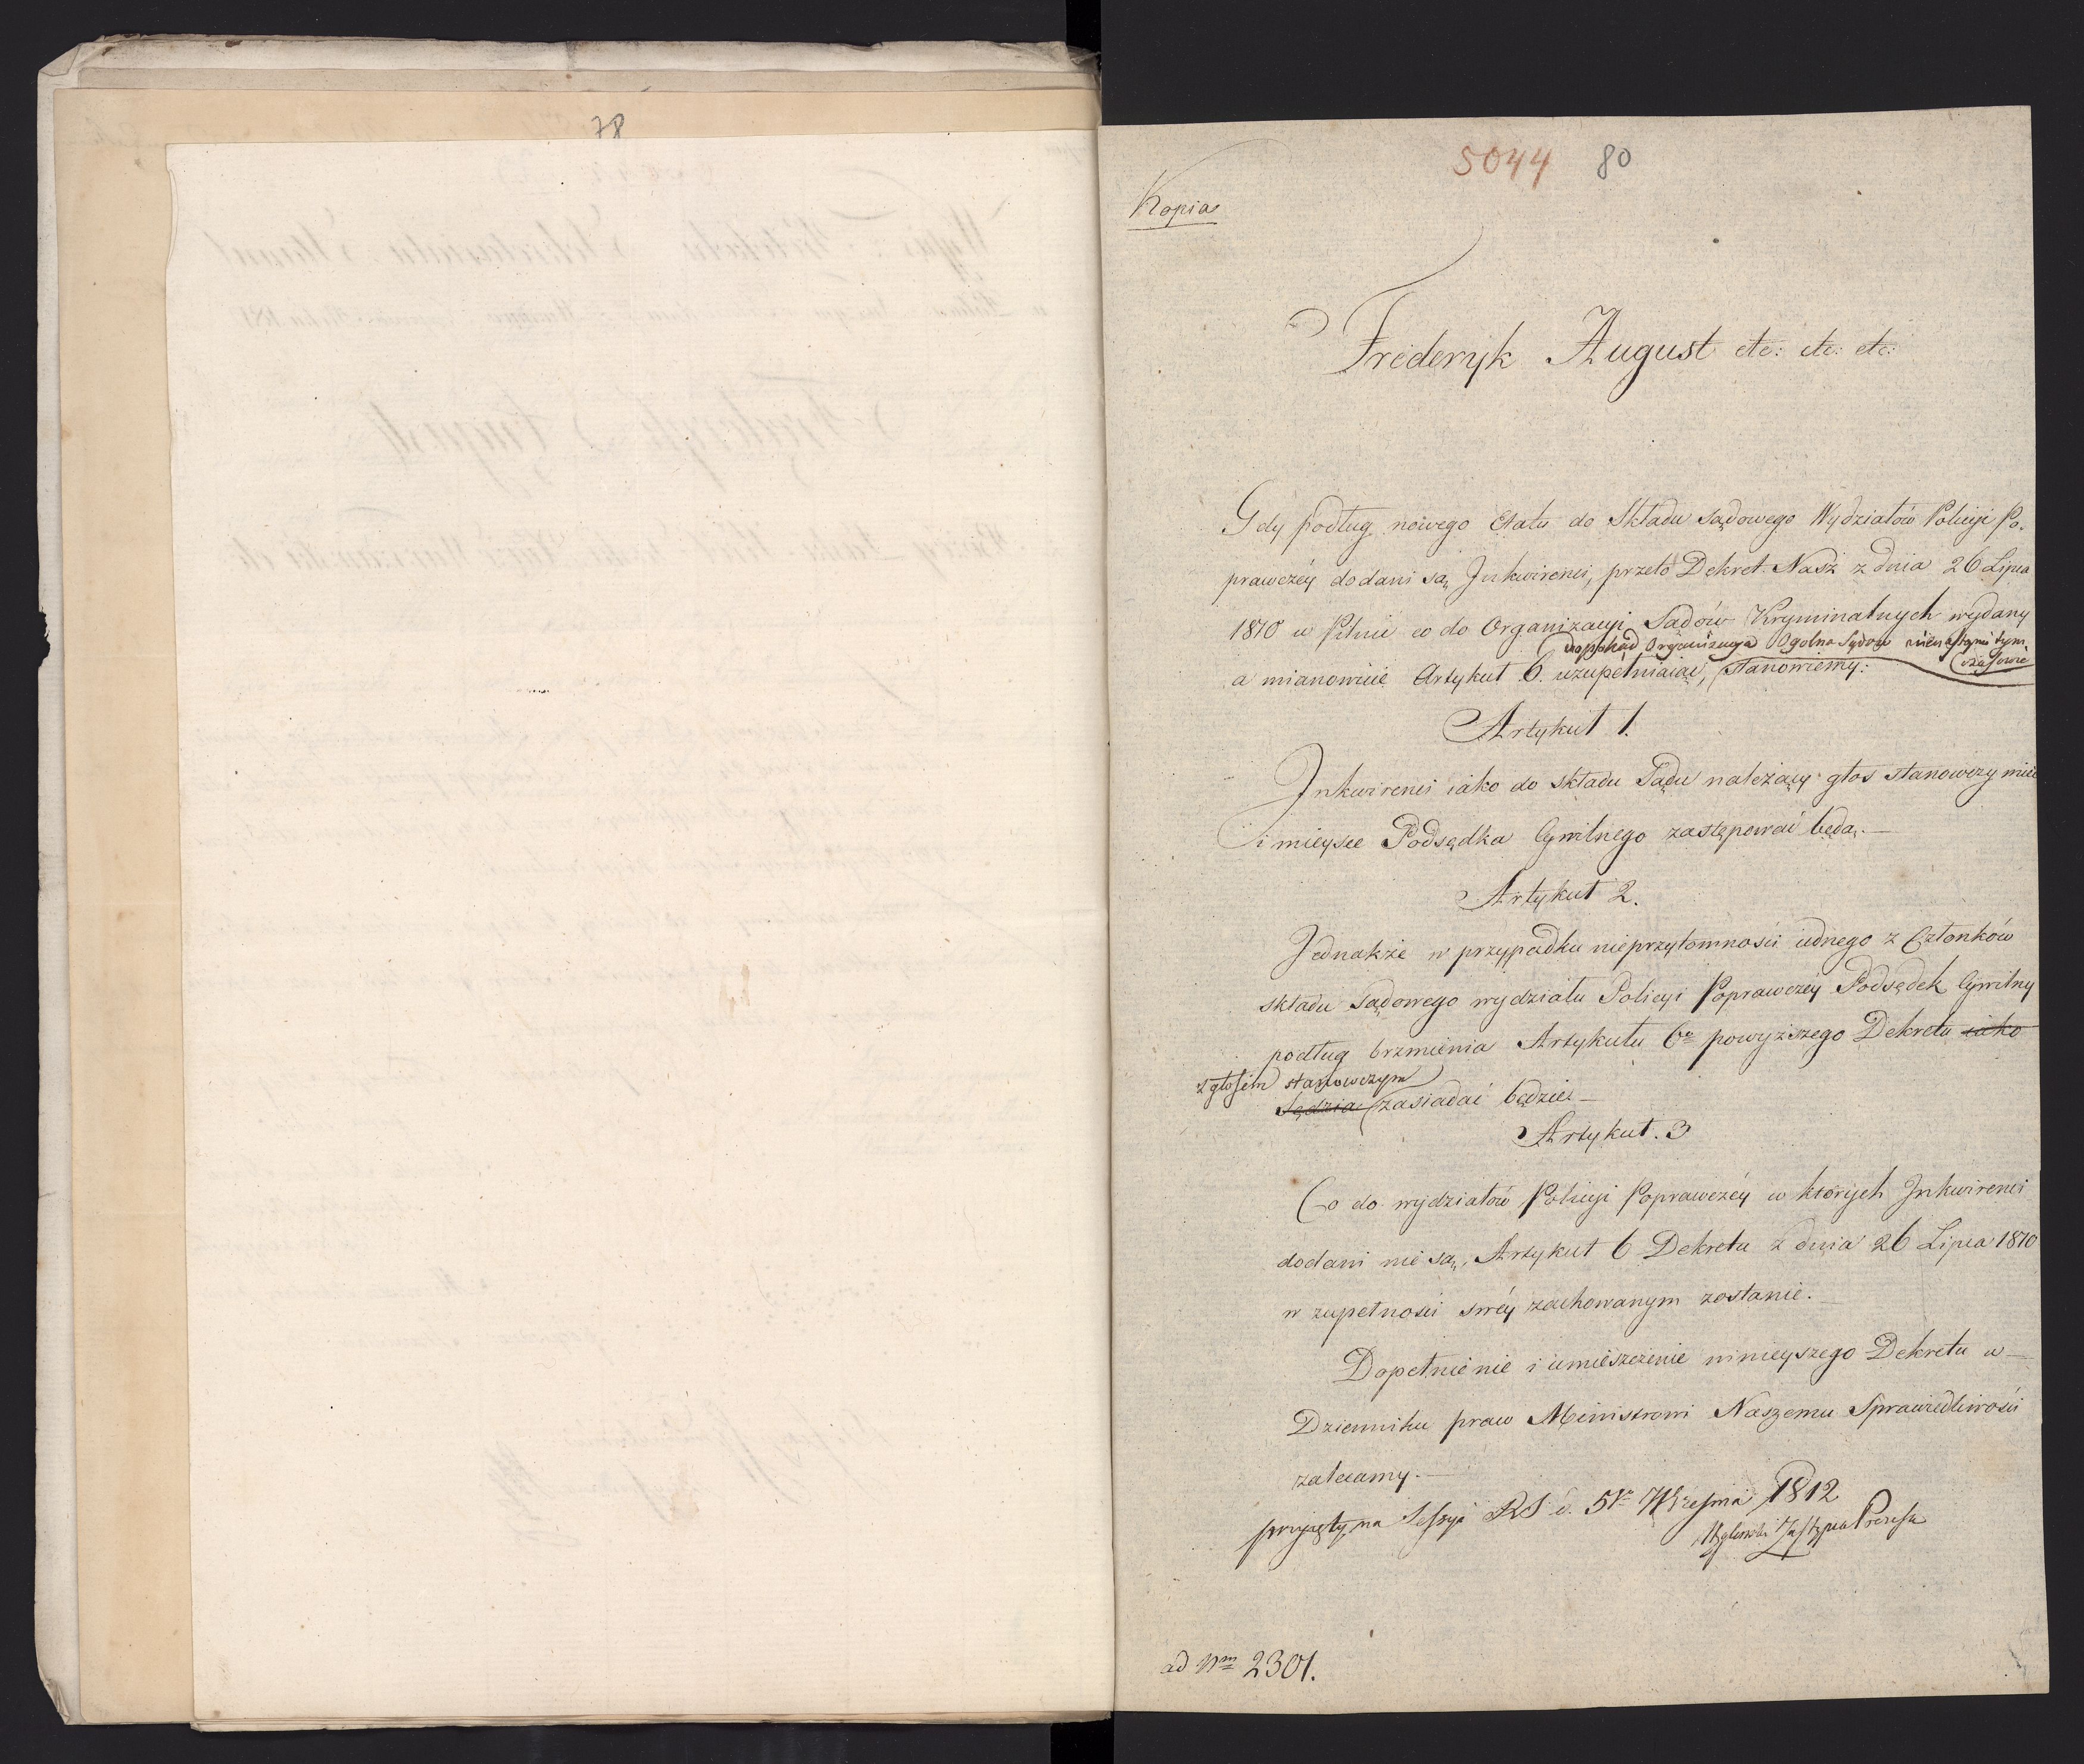 78
5044 80
Kopia
Fréderyk August etc: etc: etc:
Gdy podług nowego Etatu do Składu sądowego Wydziałów Policyi Po-
prawczéy dodani są Inkwirenci, przeto Dekret Nasz z dnia 26 Lipca
1810 w Pilnic co do Organizacyi Sądów Kryminalnych wydany
dopokąd Organizacya Ogólna Sądów nienastąpi tym-
czasowie
a mianowicie Artykuł 6. uzupełniaiąc, stanowiemy:
Artykuł 1.
Inkwirenci iako do składu Sądu należący głos stanowczy mieć
i mieysce Podsędka Cywilnego zastępować będą.—
Artykuł 2.
Jednakże w przypadku nieprzytomności iednego z Członków
składu Sądowego wydziału Policyi Poprawczéy Podsędek Cywilny
podług brzmienia Artykułu 6go powyższego Dekretu iako
z głosem stanowczym
Sędzia zasiadać będzie.—
Artykuł. 3
Co do wydziałów Policyi Poprawczéy w których Inkwirenci
dodani nie są, Artykuł 6 Dekretu z dnia 26 Lipca 1810
w zupełności swéy zachowanym zostanie.—
Dopełnienie i umieszczenie ninieyszego Dekretu w—
Dzienniku praw Ministrowi Naszemu Sprawiedliwości
zalecamy.—
przyjęty na Sessyi RS d. 5 Września 1812
Zastępca Prezesa
ad Nrm 2301.